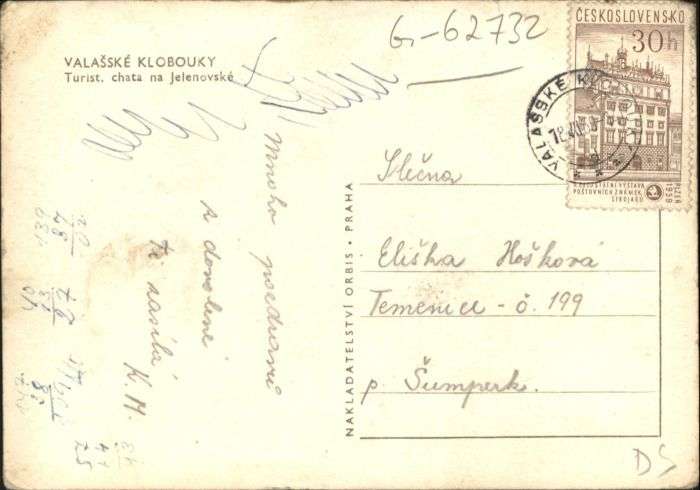 VALAŠSKÉ KLOBOUKY
Turist. chata na Jelenovské
G-62732
ČESKOSLOVENSKO
30h
CELOSTÁTNÍ VÝSTAVA
POŠTOVNÍCH ZNÁMEK
PLZEŇ
1958
VALAŠSKÉ
Mnoho pozdravů
z dovolené
ti zasílá
K. M.
NAKLADATELSTVÍ ORBIS • PRAHA
Slečna
Eliška Hošková
Temenice - č. 199
p. Šumperk.
DS